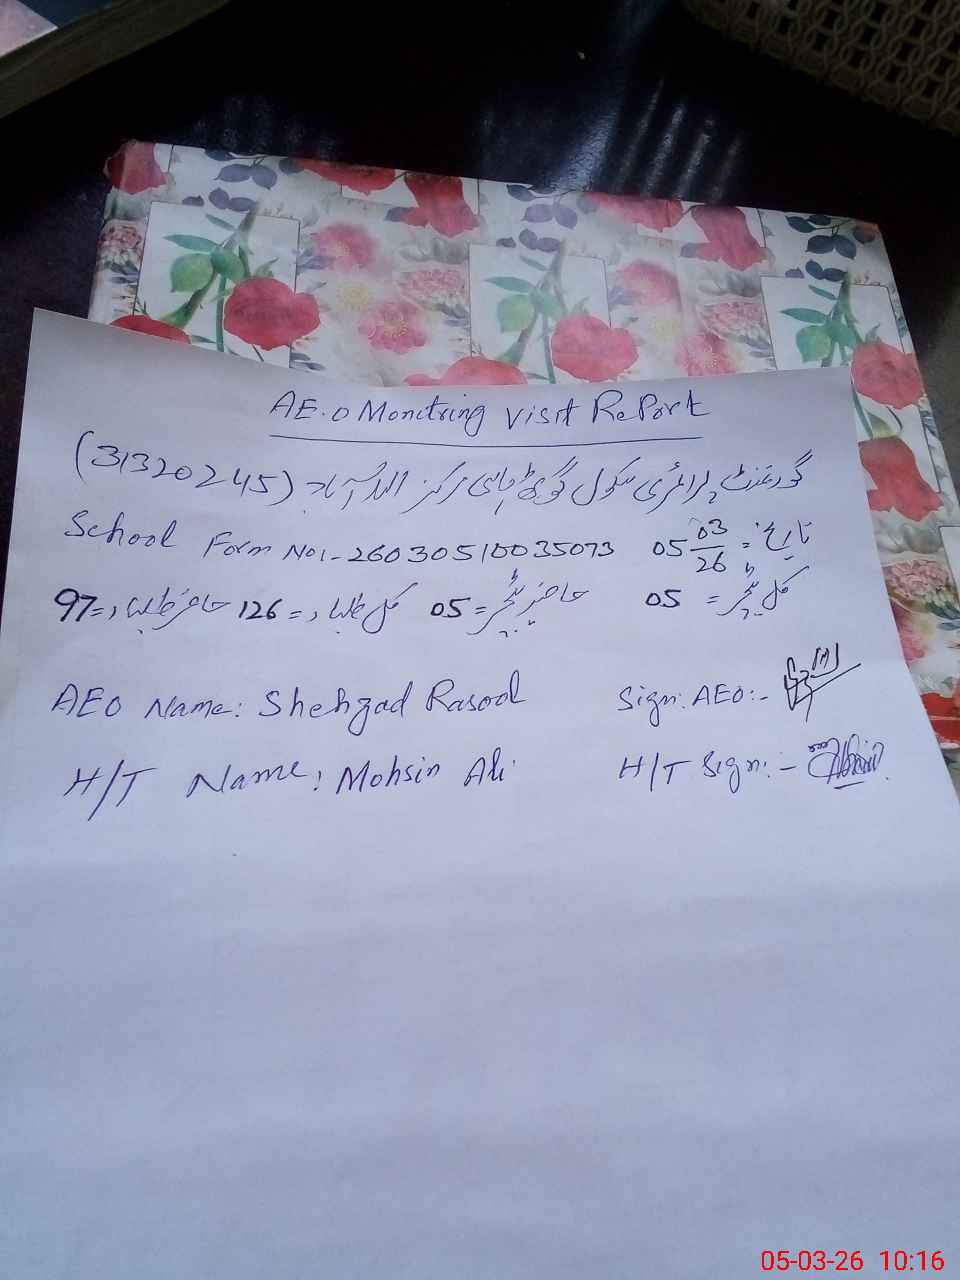 AE.O Monitring Visit RePort
گورنمنٹ پرائمری سکول گوٹھ مرکز اللہ آباد (31320245)
School Form No:- 26030510035073 05 03/26 تاریخ:
کل ٹیچر = 05 حاضر ٹیچر = 05 کل طلباء = 126 حاضر طلباء = 97
AEO Name: Shehzad Rasool Sign: AEO:-
H/T Name: Mohsin Ali H/T Sign:-
05-03-26 10:16